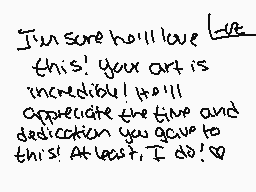 I'm sure he'll love
this! your art is
incredible! He'll
appreciate the time and
dedication you gave to
this! At least, I do! ♡